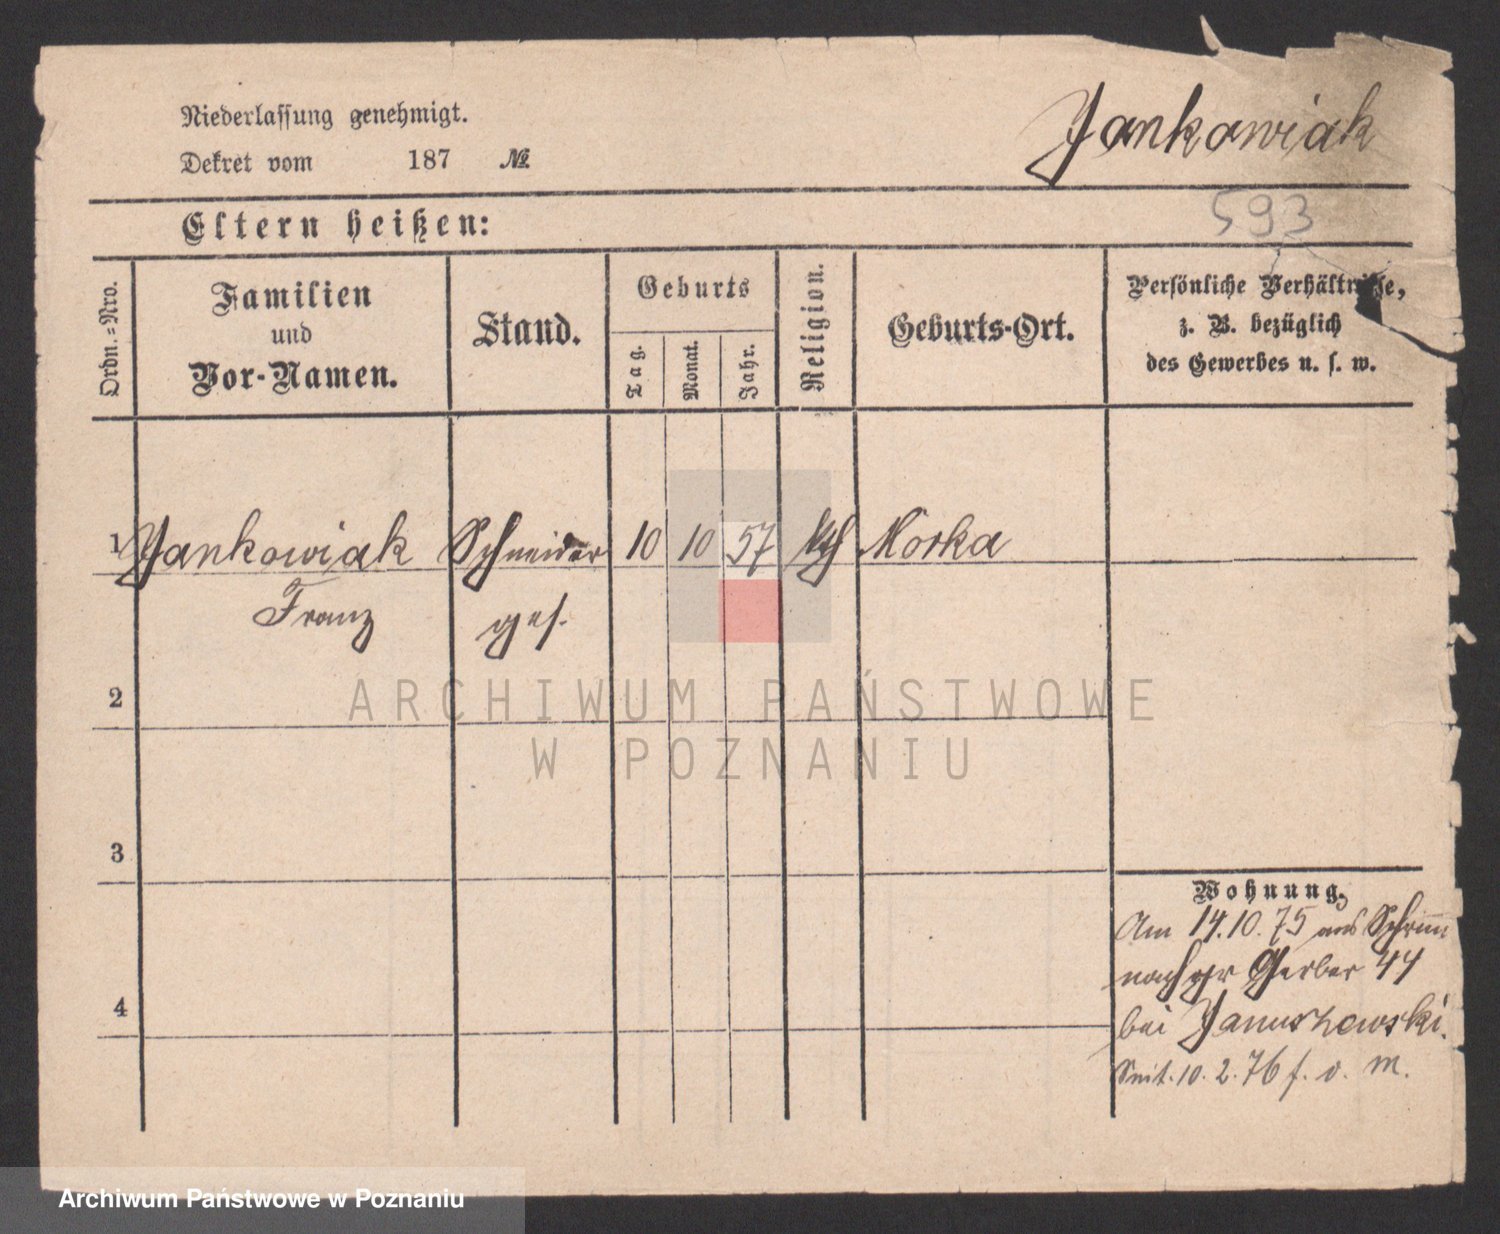 Niederlassung genehmigt.
Jankowiak
Dekret vom 187 №
593
Eltern heißen:
Ordn.=Nro.
Familien
und
Vor-Namen.
Stand.
Geburts
Tag.
Monat.
Jahr.
Religion.
Geburts-Ort.
Persönliche Verhältnisse,
z. B. bezüglich
des Gewerbes u. s. w.
1 Jankowiak Schneider 10 10 57 kth Morka
Franz ges.
2
ARCHIWUM PAŃSTWOWE
W POZNANIU
3
Wohnung.
Am 14.10.75 aus Schrimm
nach gr Gerber 44
4
bei Januszewski.
Seit. 10. 2. 76 f. o. m.
Archiwum Państwowe w Poznaniu